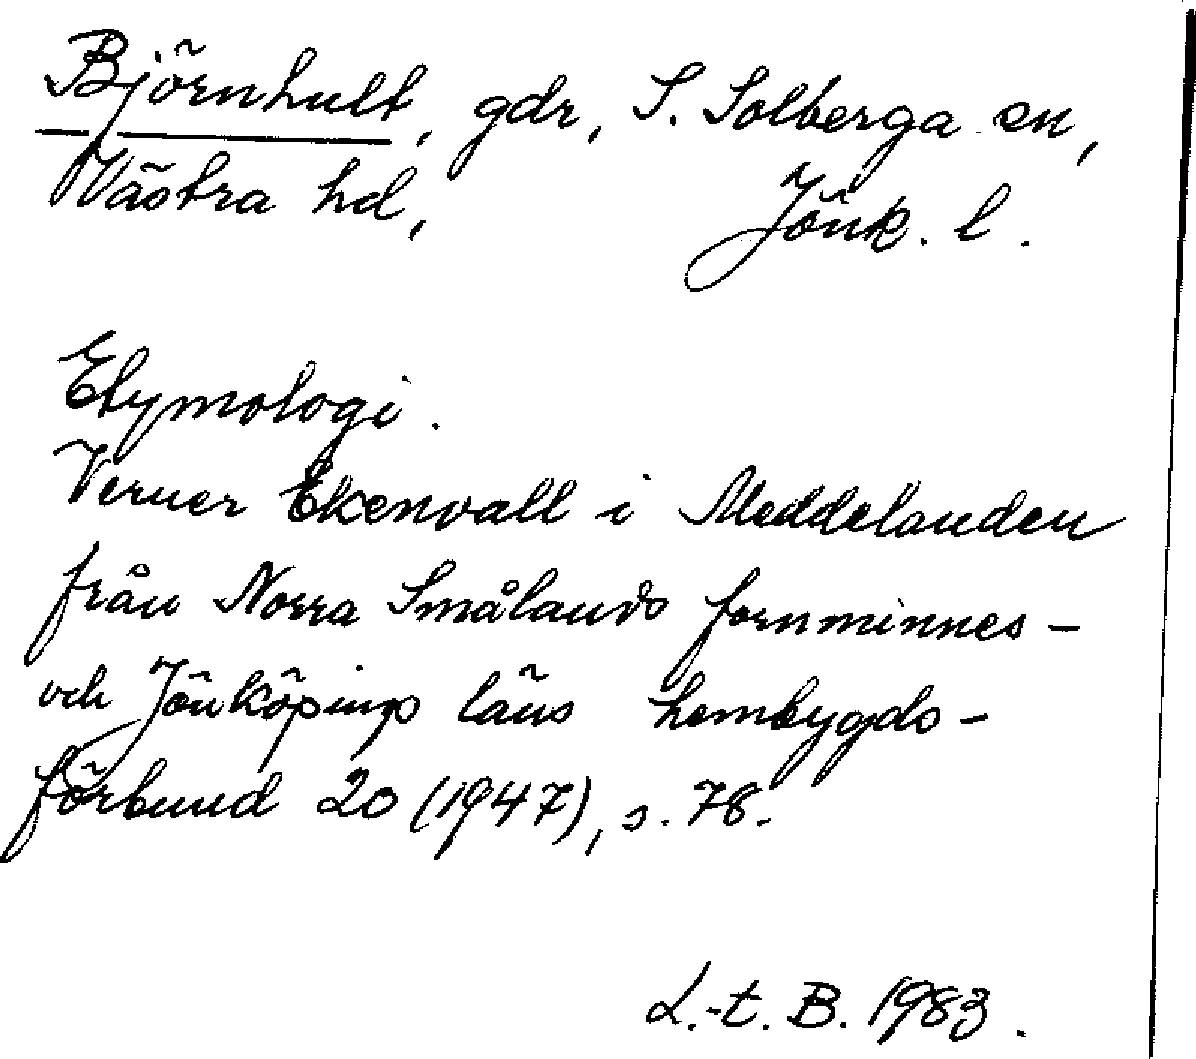 Björnhult, gdr, S. Solberga sn,
Västra hd, Jönk. l.
Etymologi.
Verner Ekenvall i Meddelanden
från Norra Smålands fornminnes-
och Jönköpings läns hembygds-
förbund 20 (1947), s. 78.
L.-t. B. 1983.